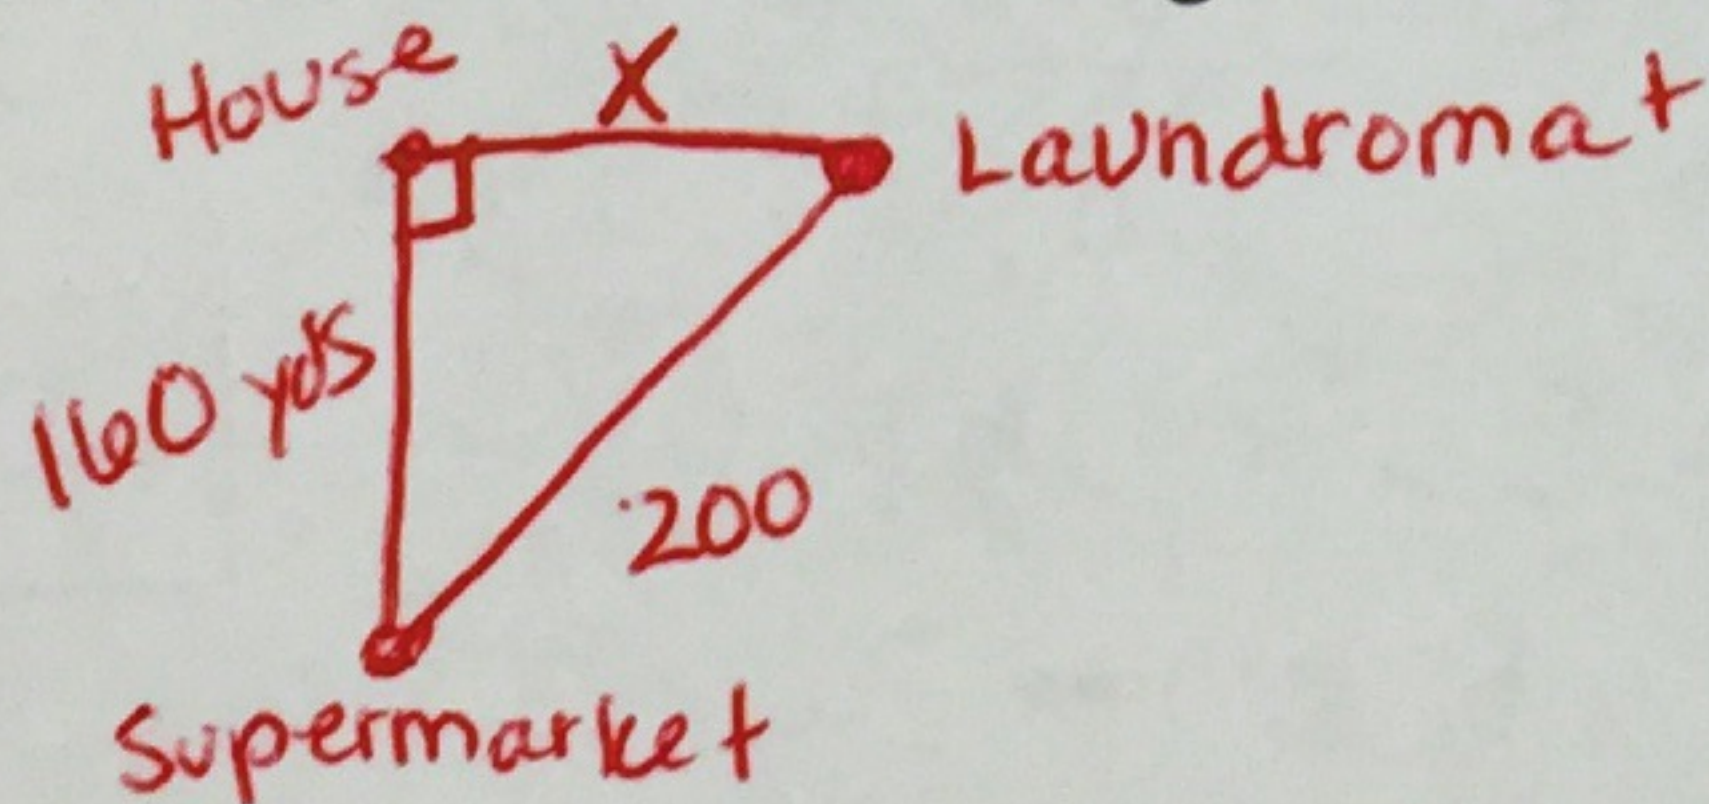 House
X
Laundromat
160 yds
200
Supermarket